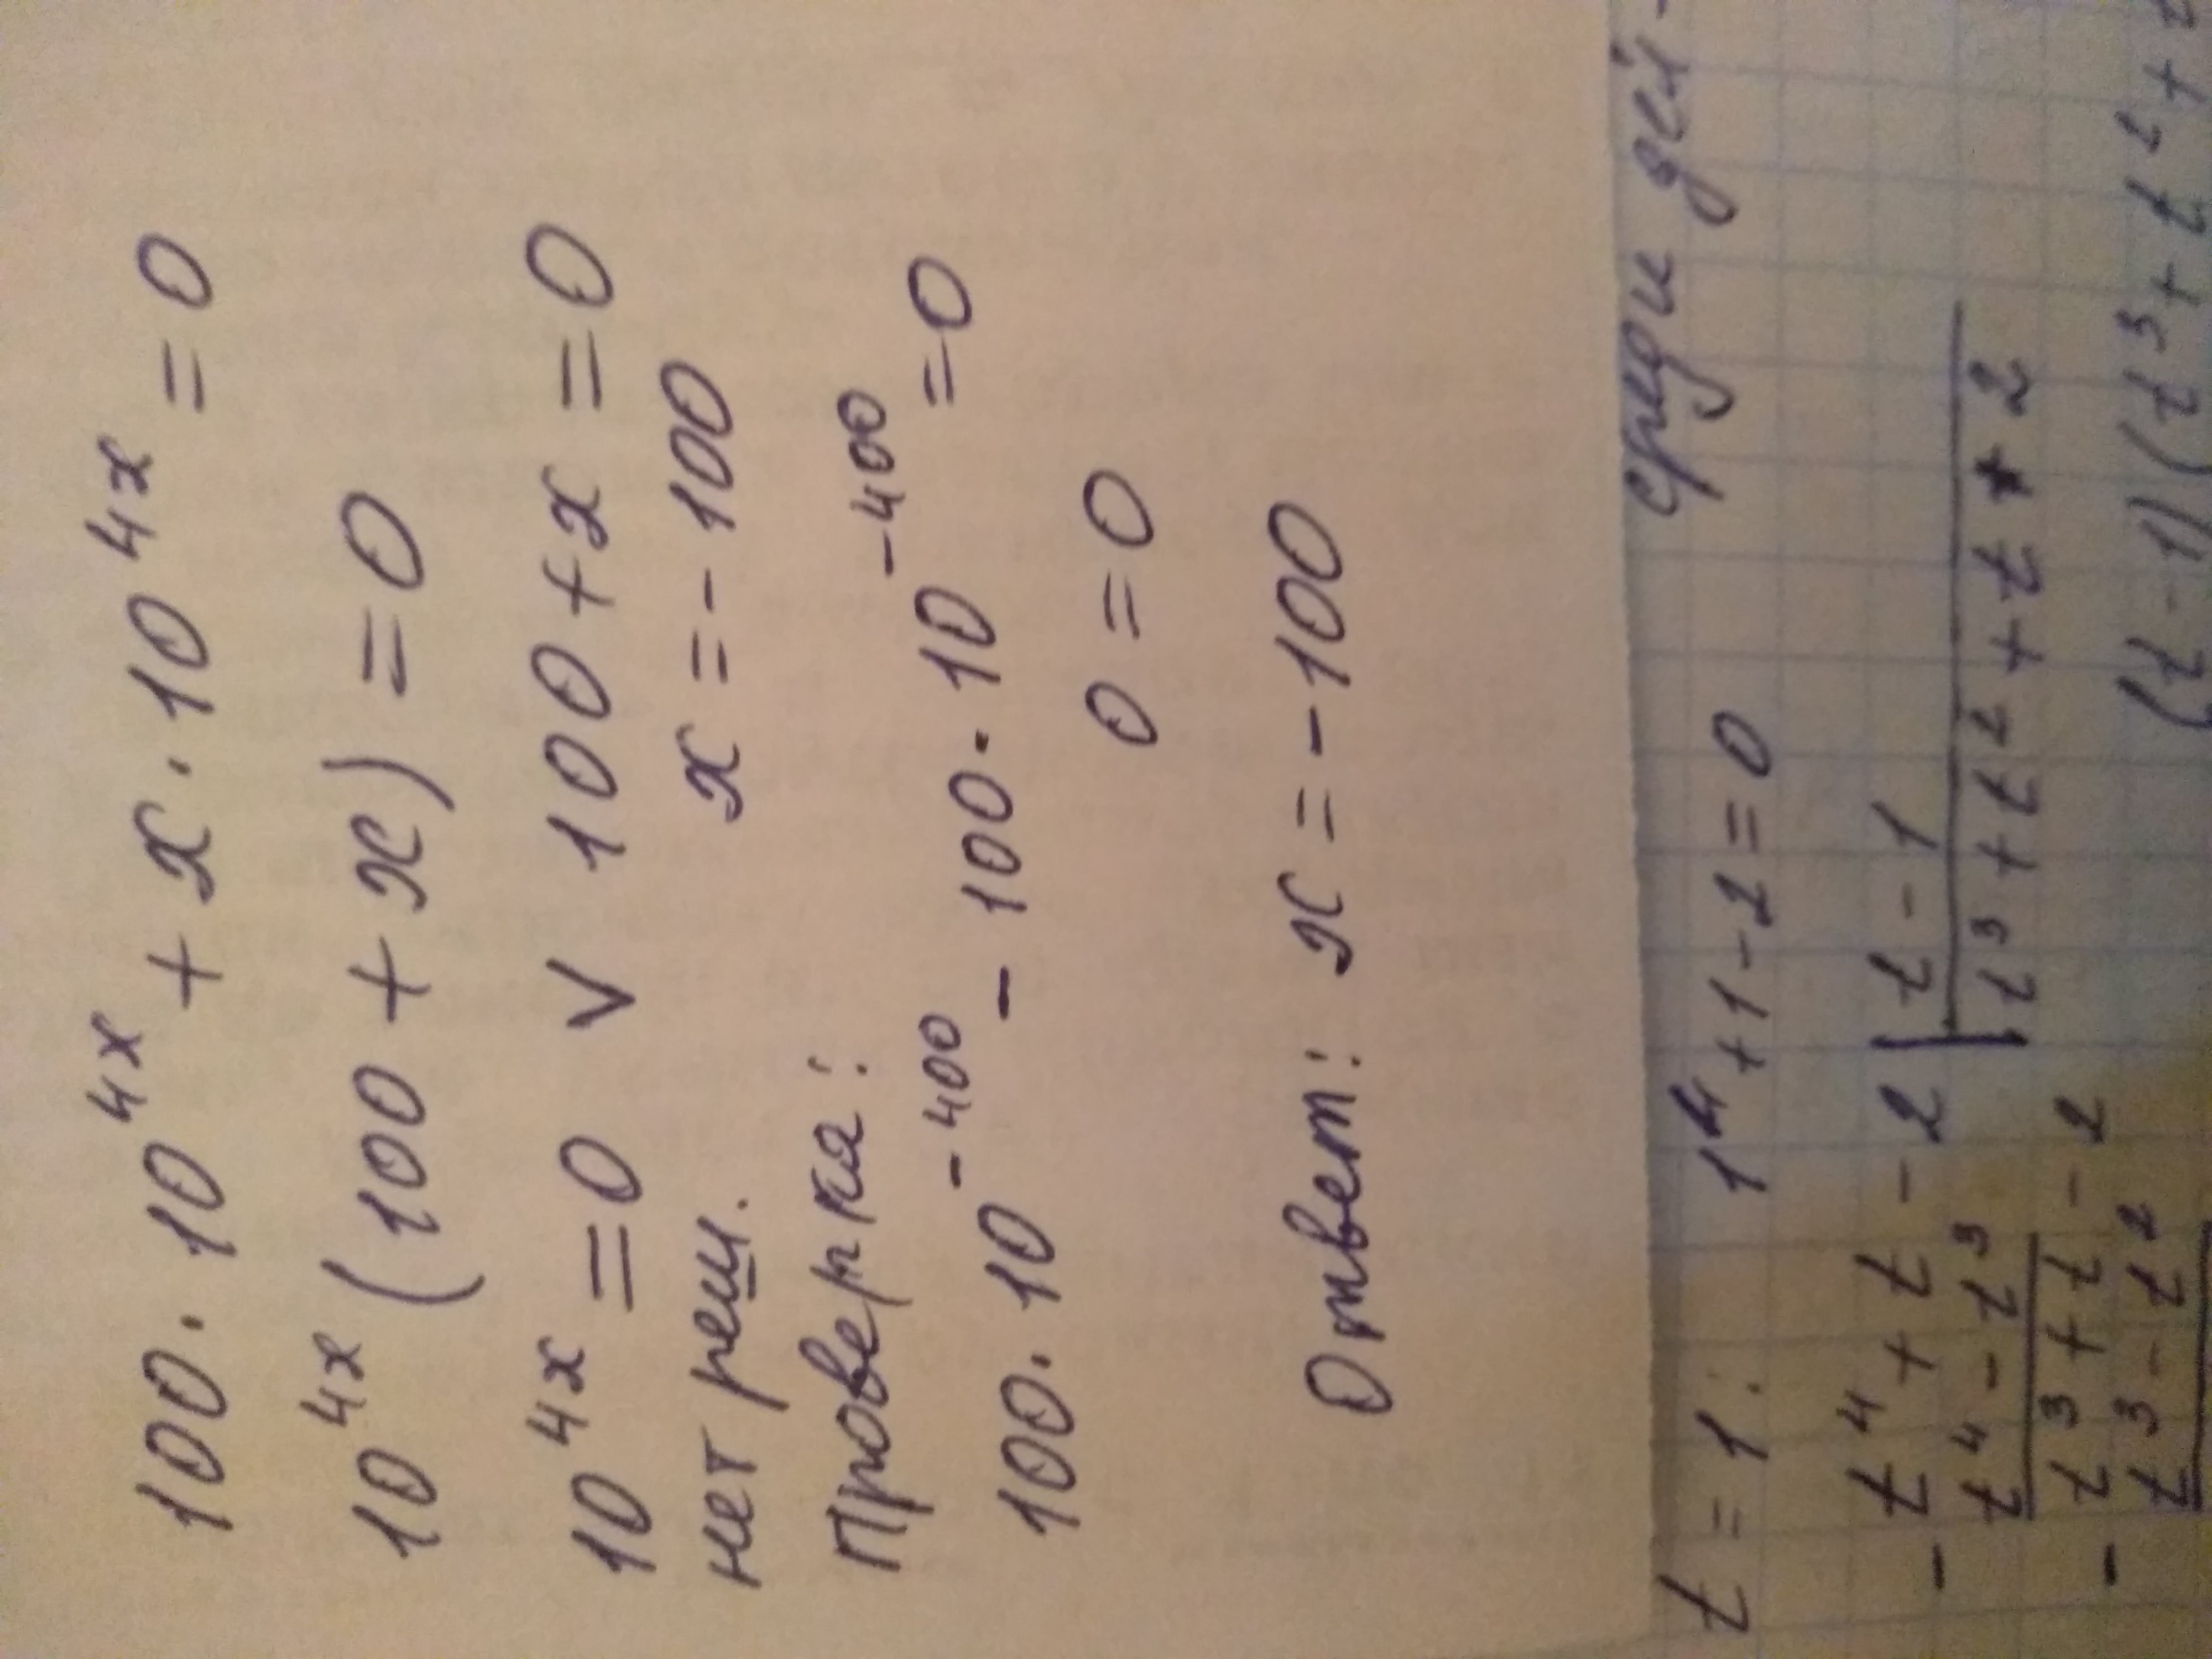 100 · 10^4x + x · 10^4x = 0
10^4x (100 + x) = 0
10^4x = 0 ∨ 100 + x = 0
нет реш. x = - 100
Проверка:
100 · 10^-400 - 100 · 10^-400 = 0
0 = 0
Ответ: x = - 100
среди дей-
t = 1: 1^4 + 1 - 2 = 0
- t^4 + t - 2 | t - 1
t^4 - t^3 | t^3 + t^2 + t + 2
t^3 + t - 2
- t^3 - t^2
(t - 1)(t^3 + t^2 +